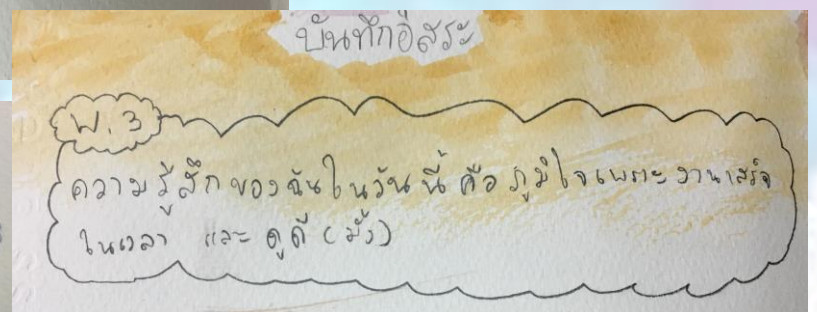 บันทึกอิสระ
พ. 3
ความรู้สึกของฉันในวันนี้ คือ ภูมิใจเพราะงานเสร็จ
ในเวลา และ ดูดี (มั้ง)